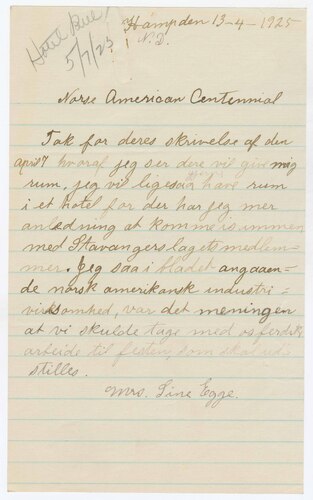 Hotel Res.
5/7/25
Hampden 13-4-1925
N.D.
Norse American Centennial
Tak for deres skrivelse af den
april 7 hvoraf jeg ser dere vil give mig
rum, jeg vil ligesaa have rum
i et hotel for der har jeg mer
anledning at komme isammen
med Stavangerslagets medlem-
mer. Jeg saa i bladet angaaen-
de norsk amerikansk industri-
virksomhed, var det meningen
at vi skulde tage med os ferdig
arbeide til festen, som skal ud-
stilles.
Mrs. Sine Egge.